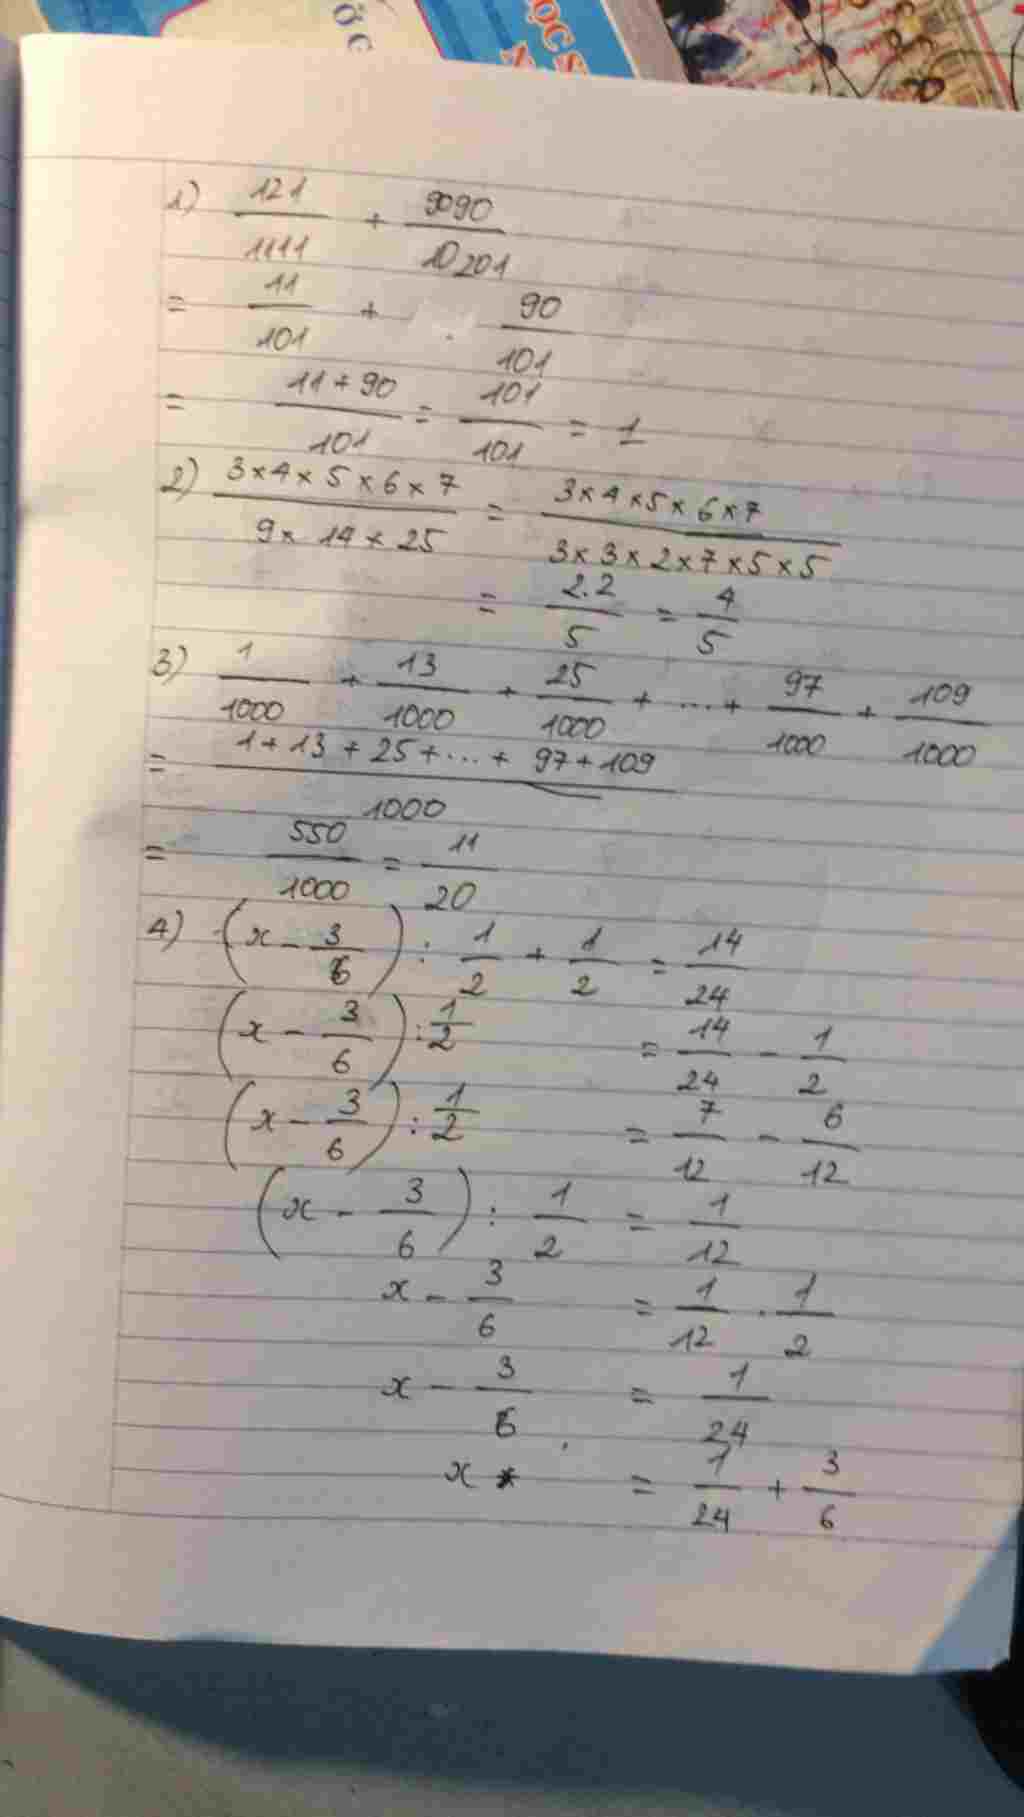 ỚC
ỌC S
1) 121/1111 + 9090/10201
= 11/101 + 90/101
= (11 + 90)/101 = 101/101 = 1
2) (3 × 4 × 5 × 6 × 7)/(9 × 14 × 25) = (3 × 4 × 5 × 6 × 7)/(3 × 3 × 2 × 7 × 5 × 5)
= 2.2/5 = 4/5
3) 1/1000 + 13/1000 + 25/1000 + ... + 97/1000 + 109/1000
= (1 + 13 + 25 + ... + 97 + 109)/1000
= 550/1000 = 11/20
4) (x - 3/6) : 1/2 + 1/2 = 14/24
(x - 3/6) : 1/2 = 14/24 - 1/2
(x - 3/6) : 1/2 = 7/12 - 6/12
(x - 3/6) : 1/2 = 1/12
x - 3/6 = 1/12 . 1/2
x - 3/6 = 1/24
x = 1/24 + 3/6